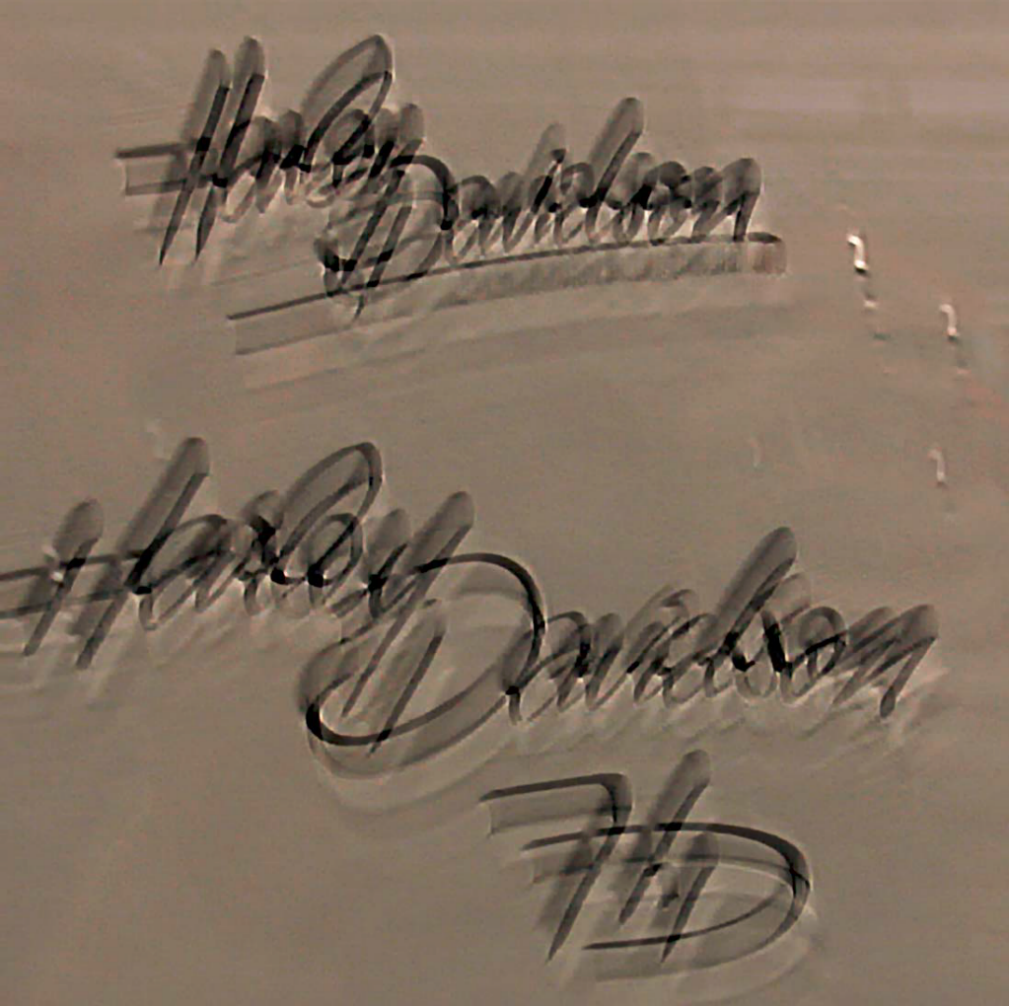 Harley
Davidson
Harley
Davidson
HD